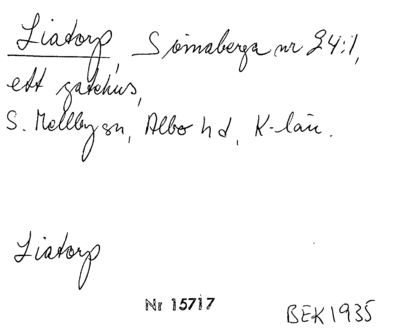 Liatorp, Simaberga nr 24:1,
ett gatehus,
S. Mellby sn, Albo hd, K-län.
Liatorp
Nr 15717
BEK 1935